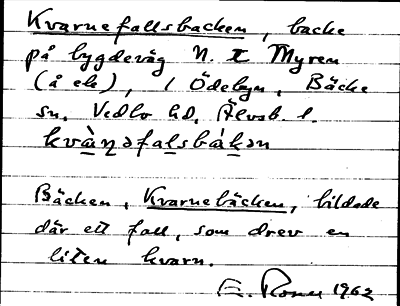 Kvarnefallsbacken, backe
på bygdeväg N. t Myren
(å ek), i Ödebyn, Bäcke
sn, Vedbo hd, Älvsb. l.
kvà̱ɳəfaḻsbàḵən
Bäcken, Kvarnebäcken, bildade
där ett fall, som drev en
liten kvarn.
1962